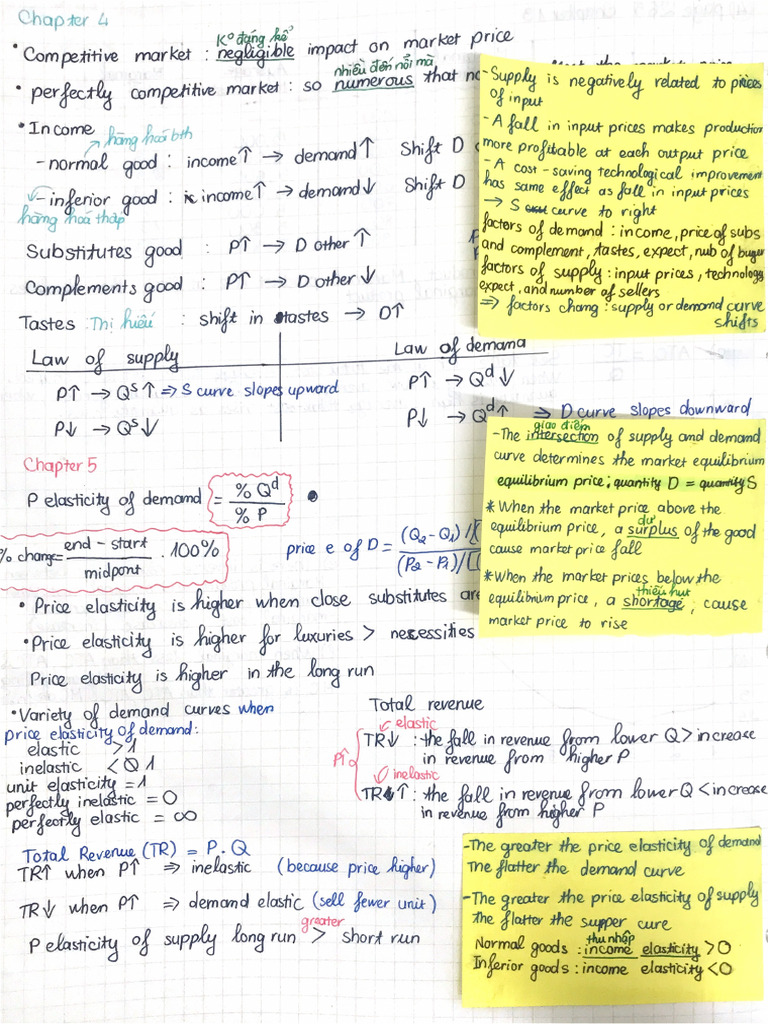 Chapter 4
Kº đáng kể
• Competitive market : negligible impact on market price
nhiều đến nỗi mà
• perfectly competitive market : so numerous that no
• Income
hàng hoá bth
- normal good : income↑ → demand↑ Shift D
- inferior good : income↑ → demand↓ Shift D
hàng hoá thấp
Substitutes good : P↑ → D other ↑
Complements good : P↑ → D other ↓
Tastes : Thị hiếu : shift in tastes → D↑
- Supply is negatively related to prices
of input
- A fall in input prices makes production
more profitable at each output price
- A cost-saving technological improvement
has same effect as fall in input prices
→ S curve to right
factors of demand : income, price of subs
and complement, tastes, expect, nub of buyer
factors of supply : input prices, technology
expect, and number of sellers
⇒ factors chang : supply or demand curve
shifts
Law of supply
P↑ → Qˢ↑ ⇒ S curve slopes upward
P↓ → Qˢ↓
Law of demand
P↑ → Qᵈ↓
P↓ → Qᵈ↑ ⇒ D curve slopes downward
giao điểm
- The intersection of supply and demand
curve determines the market equilibrium
equilibrium price ; quantity D = quantity S
* When the market price above the
dư
equilibrium price, a surplus of the good
cause market price fall
* When the market prices below the
thiếu hụt
equilibrium price, a shortage, cause
market price to rise
Chapter 5
P elasticity of demand = % Qᵈ / % P
% change = end - start / midpont . 100%
price e of D = (Q₂ - Q₁) / [ / (P₂ - P₁) / [
• Price elasticity is higher when close substitutes are
• Price elasticity is higher for luxuries > necessities
Price elasticity is higher in the long run
• Variety of demand curves when
price elasticity of demand :
elastic > 1
inelastic < 1
unit elasticity = 1
perfectly inelastic = 0
perfectly elastic = ∞
Total revenue
elastic
P↑
TR↓ : the fall in revenue from lower Q > increase
in revenue from higher P
inelastic
TR↑ : the fall in revenue from lower Q < increase
in revenue from higher P
Total Revenue (TR) = P . Q
TR↑ when P↑ ⇒ inelastic (because price higher)
TR↓ when P↑ ⇒ demand elastic (sell fewer unit)
greater
P elasticity of supply long run > short run
- The greater the price elasticity of demand
The flatter the demand curve
- The greater the price elasticity of supply
the flatter the supper cure
thu nhập
Normal goods : income elasticity > 0
Inferior goods : income elasticity < 0